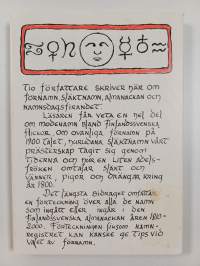 TIO FÖRFATTARE SKRIVER HÄR OM
FÖRNAMN, SLÄKTNAMN, ALMANACKAN OCH
NAMNSDAGSFIRANDET.
LÄSAREN FÅR VETA EN HEL DEL
OM MODENAMN BLAND FINLANDSSVENSKA
FLICKOR, OM OVANLIGA FÖRNAMN PÅ
1900 TALET, HURUDANA SLÄKTNAMN VÅRT
PRÄSTERSKAP TAGIT SIG GENOM
TIDERNA OCH HUR EN LITEN ADELS-
FRÖKEN OMTALAR SLÄKT OCH
VÄNNER, PIGOR OCH DRÄNGAR KRING
ÅR 1800.
DET LÄNGSTA BIDRAGET OMFATTAR
EN FÖRTECKNING ÖVER ALLA DE NAMN
SOM INGÅTT ELLER INGÅR I DEN
FINLANDSSVENSKA ALMANACKAN ÅREN 1810-
2000. FÖRTECKNINGEN LIKSOM NAMN-
REGISTRET KAN KANSKE GE TIPS VID
VALET AV FÖRNAMN.